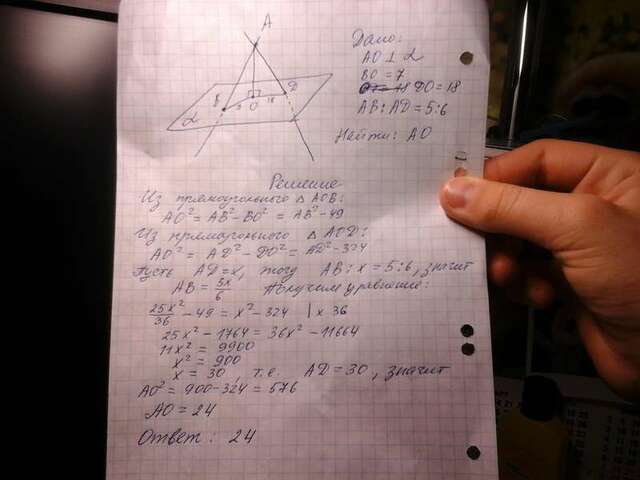 A
B
D
O
18
α
Дано:
AO ⊥ α
BO = 7
DO = 18
AB : AD = 5:6
Найти: AO
Решение
Из прямоугольного △ AOB:
AO² = AB² - BO² = AB² - 49
Из прямоугольного △ AOD:
AO² = AD² - DO² = AD² - 324
Пусть AD = x, тогда AB : x = 5:6, значит
AB = 5x/6 Получим уравнение:
25x²/36 - 49 = x² - 324 | x 36
25x² - 1764 = 36x² - 11664
11x² = 9900
x² = 900
x = 30, т.е. AD = 30, значит
AO² = 900 - 324 = 576
AO = 24
Ответ: 24